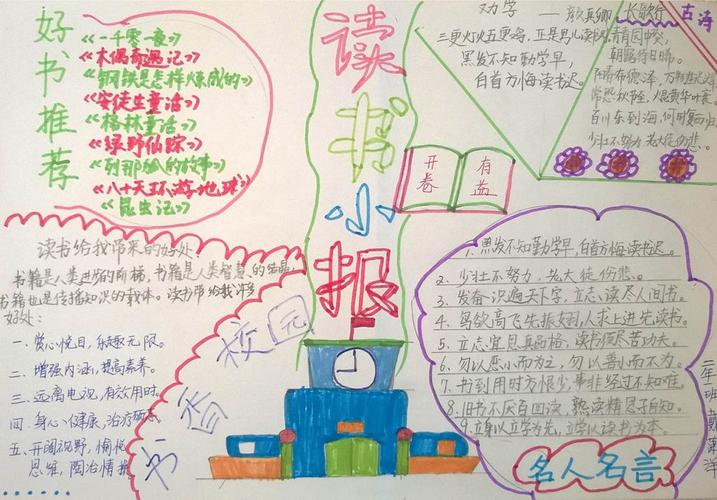 好书推荐
《一千零一夜》
《木偶奇遇记》
《钢铁是怎样炼成的》
《安徒生童话》
《格林童话》
《绿野仙踪》
《列那狐的故事》
《八十天环游地球》
《昆虫记》
读书小报
劝学
——颜真卿
三更灯火五更鸡，正是男儿读书
黑发不知勤学早，
白首方悔读书迟。
长歌行
古诗
青青园中葵，
朝露待日晞。
阳春布德泽，万物生
常恐秋节至，焜黄华叶衰
百川东到海，何时复西归
少壮不努力，老大徒伤悲。
开卷
有益
读书给我带来的好处：
书籍是人类进步的阶梯，书籍是人类智慧的结晶，
书籍也是传播知识的载体。读书带给我许多
好处：
一、赏心悦目，乐趣无限。
二、增强内涵，提高素养。
三、远离电视，有效用时
四、身心健康，治疗
五、开阔视野，愉悦
思维，陶冶情操
书香校园
1、黑发不知勤学早，白首方悔读书迟。
2、少壮不努力，老大徒伤悲。
3、发奋识遍天下字，立志读尽人间书。
4、鸟欲高飞先振翅，人求上进先读书。
5、立志宜思真品格，读书须尽苦功夫。
6、勿以恶小而为之，勿以善小而不为。
7、书到用时方恨少，事非经过不知难。
8、旧书不厌百回读，熟读精思子自知。
9、立身以立学为先，立学以读书为本。
名人名言
二年一班